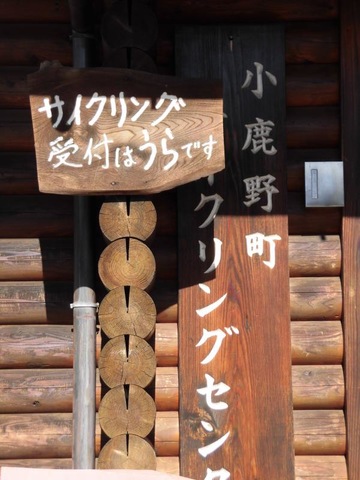 サイクリング
受付はうらです
小鹿野町
イクリングセンタ